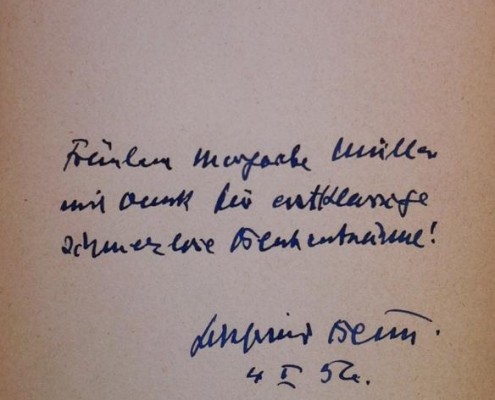 Fräulein Margarete Müller
mit Dank für erstklassige
schmerzlose Blutentnahme!
Gottfried Benn.
4 I 56.